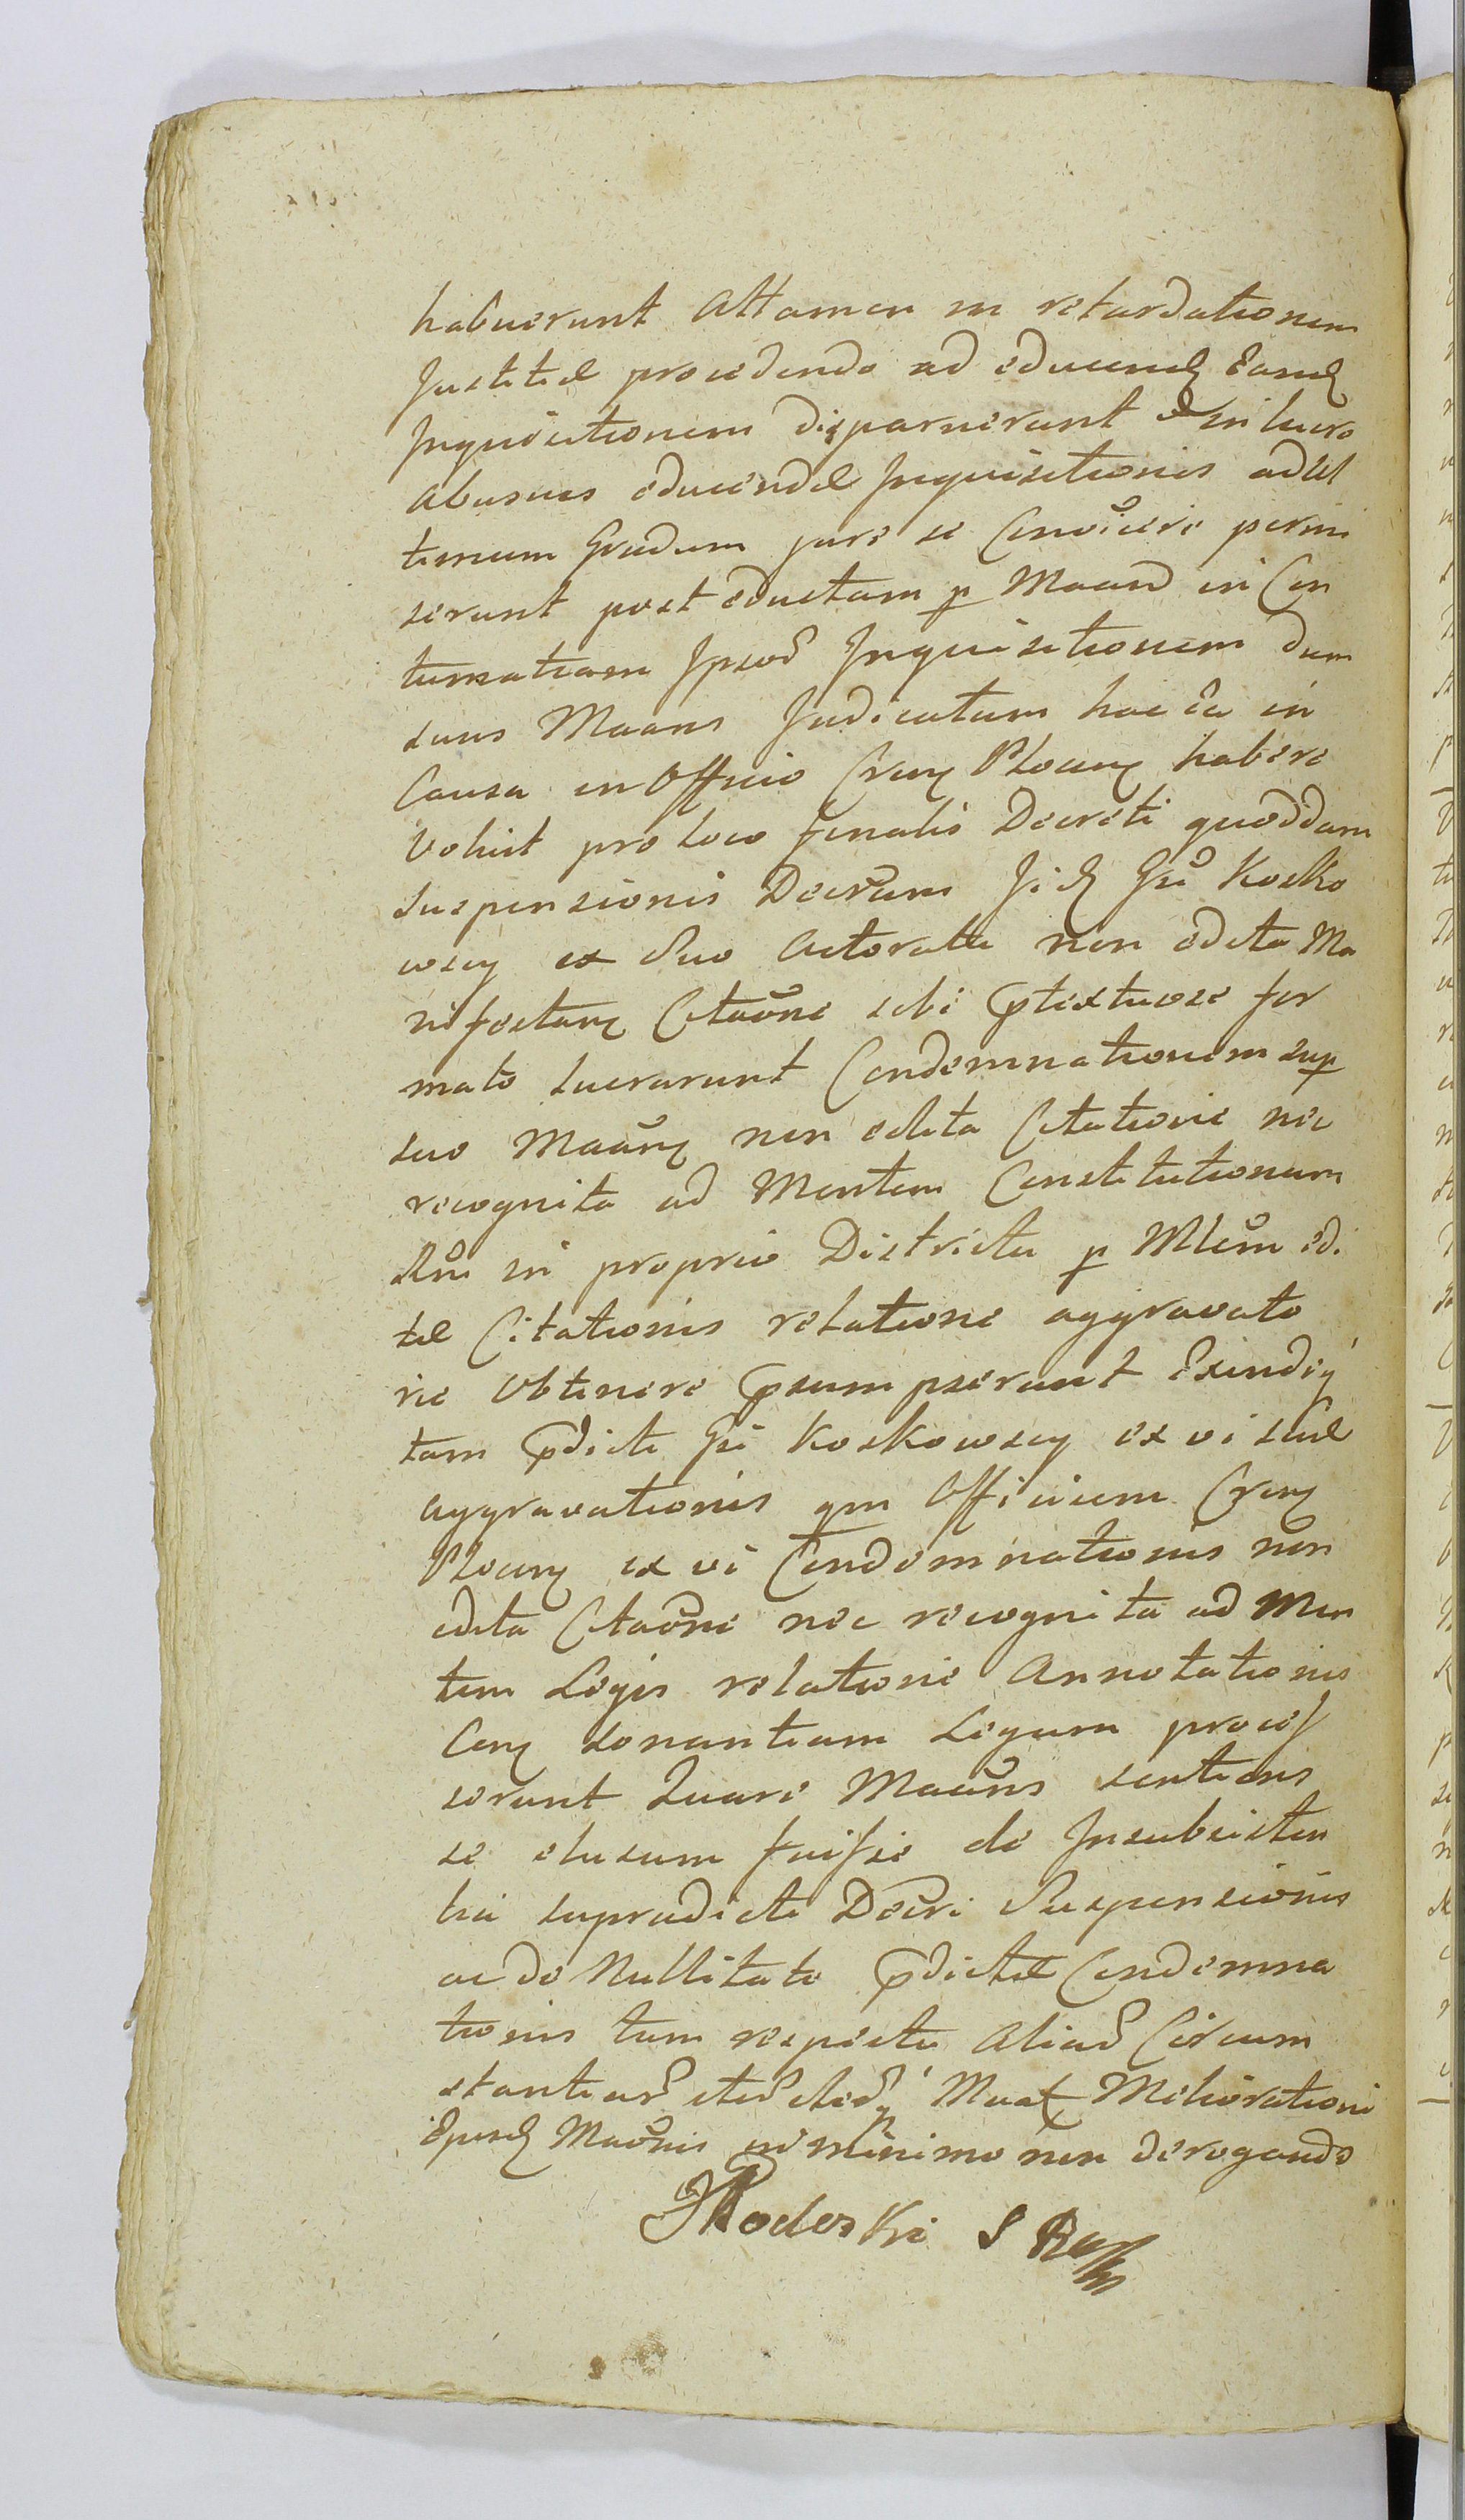 habuerunt Attamen in retardationem
Justitiæ procedendo ad educend Eand
Inquisitionem disparuerunt & in lucro
abusus educendæ Inquisitionis ad Ul
timum Gradum jure se Convicere permi
serunt post eductam p Maand in Con
tumatiam Ipsor Inquisitionem dum
suus Maans Judicatum hac ea in
Causa in Officio Cren Plocen habere
Voluit pro loco finalis Decreti quoddam
Suspensionis Decrum Ji d Gsi Kosko
wscy ex Suo Actoratu non edita Ma
nifestan Citaone sibi ptextuose for
mato lucrarunt Condemnationem sup
suo Maan non edita Citatione nec
recognita ad Mentem Constitutionum
Rni in proprio Districtu p Mlem edi
tæ Citationis relatione aggravato
rie Obtinere psumpserunt Exindeq
tam pdicti Gsi Koskowscy ex vi suæ
aggravationis qm Officium Cren
Plocen ex vi Condemnationis non
edita Citaone nec recognita ad Men
tem Legis relatione Annotationis
Cen sonantium Legum proces
serunt Quare Maans sentiens
se elusum fuisse de Insubsisten
tia supradicti Decri Suspensionis
ac de Nullitate pdictæ Condemna
tionis tum respectu Aliar Circum
stantiar Meliorationi
Ejusd Maonis in minimo non derogando